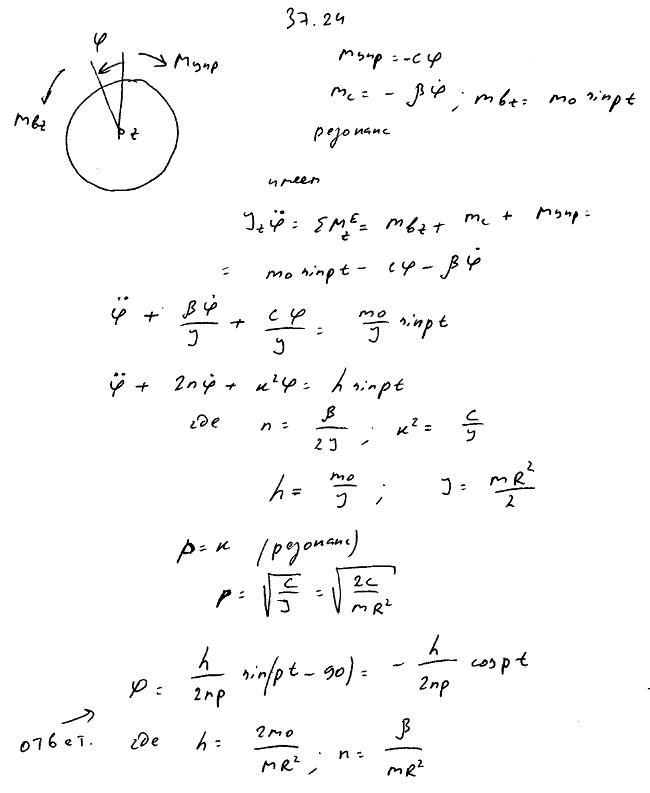 37.24
φ
Mупр
Mвz
z
mупр = -cφ
mc = - βφ̇ ; mвz = m0 sin pt
резонанс
имеем
Jzφ̈ = ΣMzᴱ = mвz + mc + Mупр =
= m0 sin pt - cφ - βφ̇
φ̈ + βφ̇/J + cφ/J = m0/J sin pt
φ̈ + 2nφ̇ + к²φ = h sin pt
где n = β/2J ; к² = c/J
h = m0/J ; J = mR²/2
p = к (резонанс)
p = √(c/J) = √(2c/mR²)
φ = h/2np sin(pt - 90) = - h/2np cos pt
ответ. где h = 2m0/mR² ; n = β/mR²